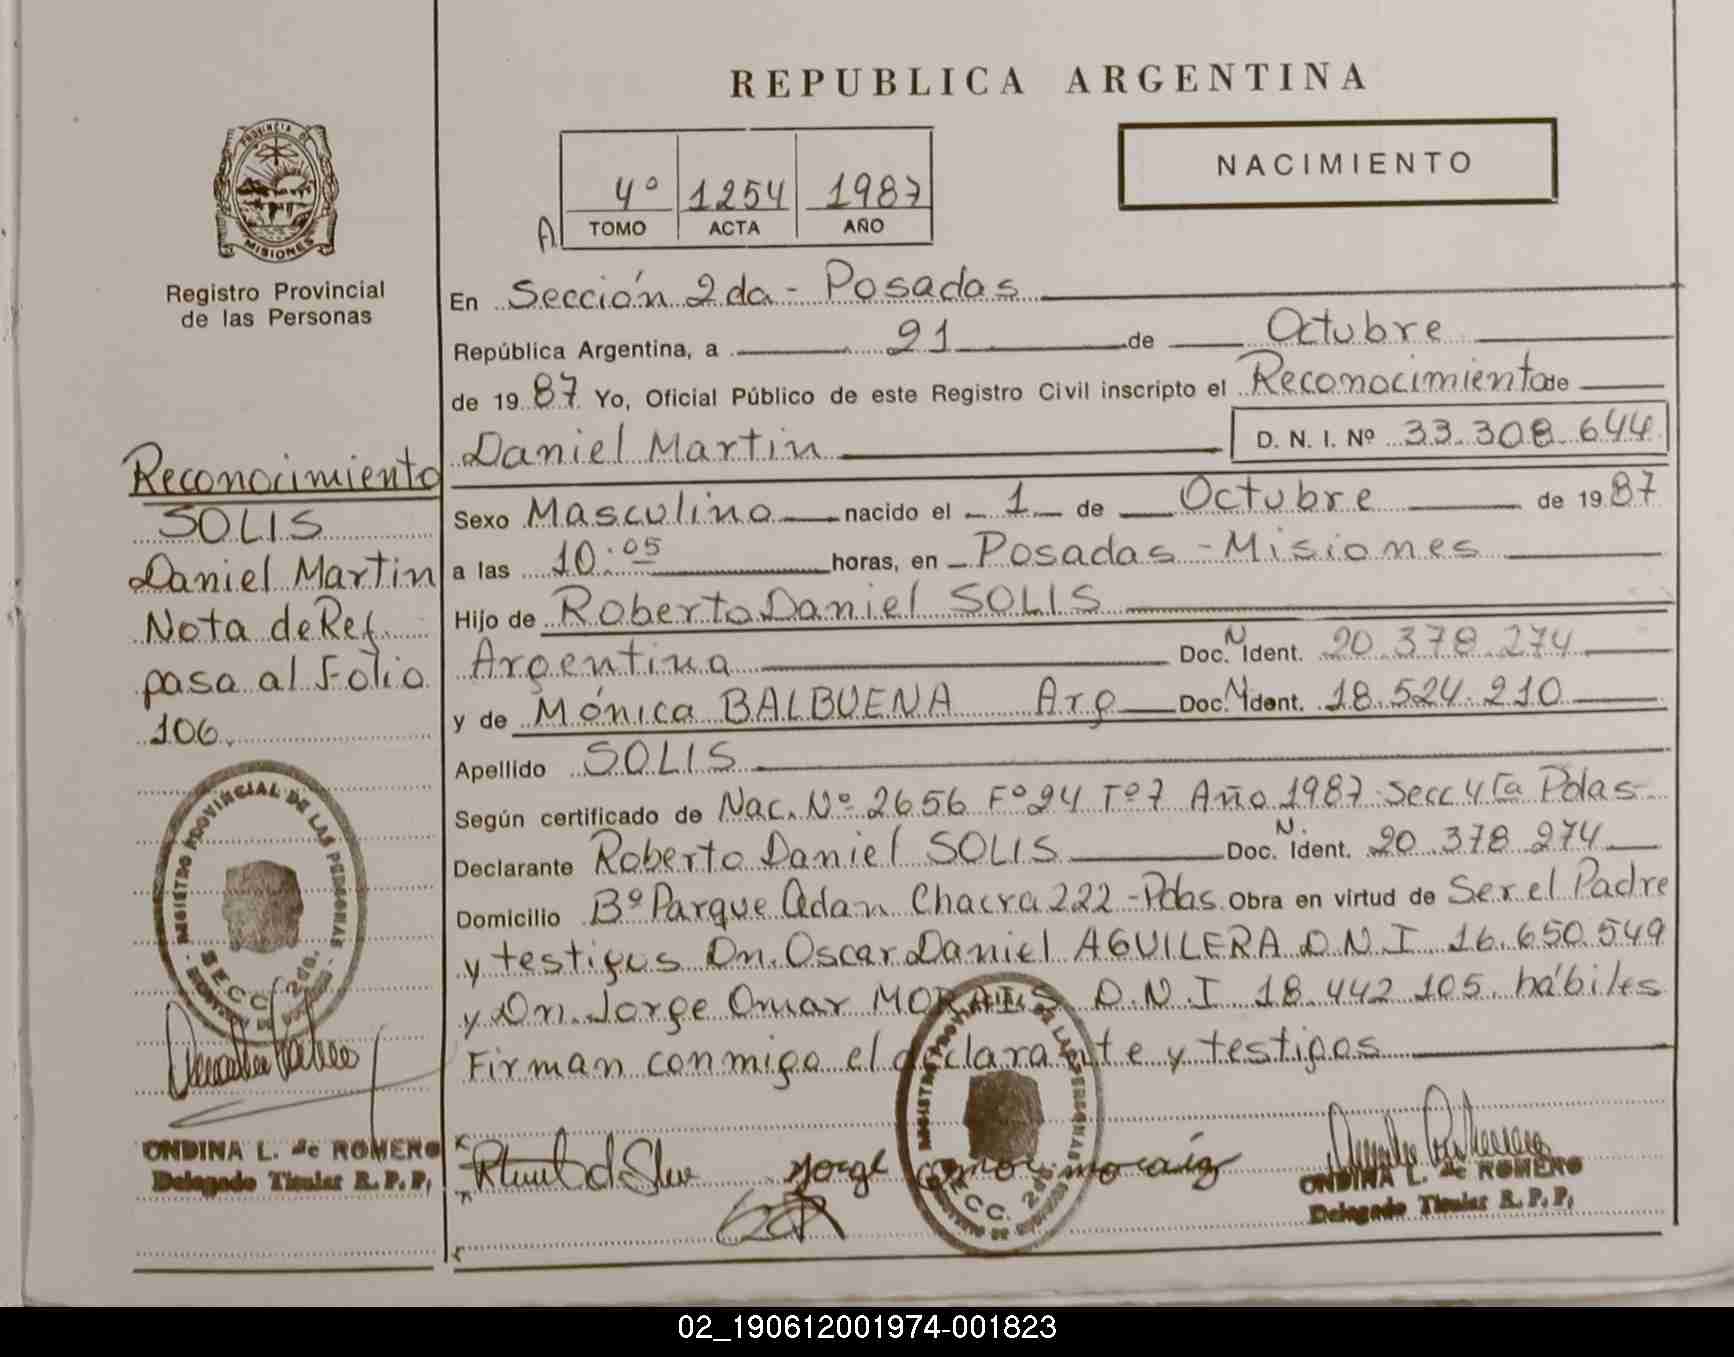 REPUBLICA ARGENTINA
NACIMIENTO
4º 1254 1987
A TOMO ACTA AÑO
PROVINCIA DE MISIONES
Registro Provincial
de las Personas
En Sección 2da - Posadas
República Argentina, a 21 de Octubre
de 1987 Yo, Oficial Público de este Registro Civil inscripto el Reconocimiento de
Daniel Martin D. N. I. Nº 33.308.644
Sexo Masculino nacido el 1 de Octubre de 1987
a las 10:05 horas, en Posadas - Misiones
Hijo de Roberto Daniel SOLIS
Argentina Doc. N Ident. 20.378.274
y de Mónica BALBUENA Arg Doc. N Ident. 18.524.210
Apellido SOLIS
Según certificado de Nac. Nº 2656 Fº 24 Tº 7 Año 1987 Secc 4ta Pdas-
Declarante Roberto Daniel SOLIS Doc. N. Ident. 20.378.274
Domicilio Bº Parque Adan Chacra 222 - Pdas. Obra en virtud de Ser el Padre
y testigos Dn. Oscar Daniel AGUILERA D.N.I 16.650.549
y Dn. Jorge Omar MORAIS D.N.I 18.442.105. hábiles
Firman conmigo el declarante y testigos
Reconocimiento
SOLIS
Daniel Martin
Nota de Ref.
pasa al Folio
106.
REGISTRO PROVINCIAL DE LAS PERSONAS
SECC. 2da.
ONDINA L. de ROMERO
Delegado Titular R. P. P.
REGISTRO PROVINCIAL DE LAS PERSONAS
SECC. 2da.
Jorge Omar
ONDINA L. de ROMERO
Delegado Titular R. P. P.
02_190612001974-001823